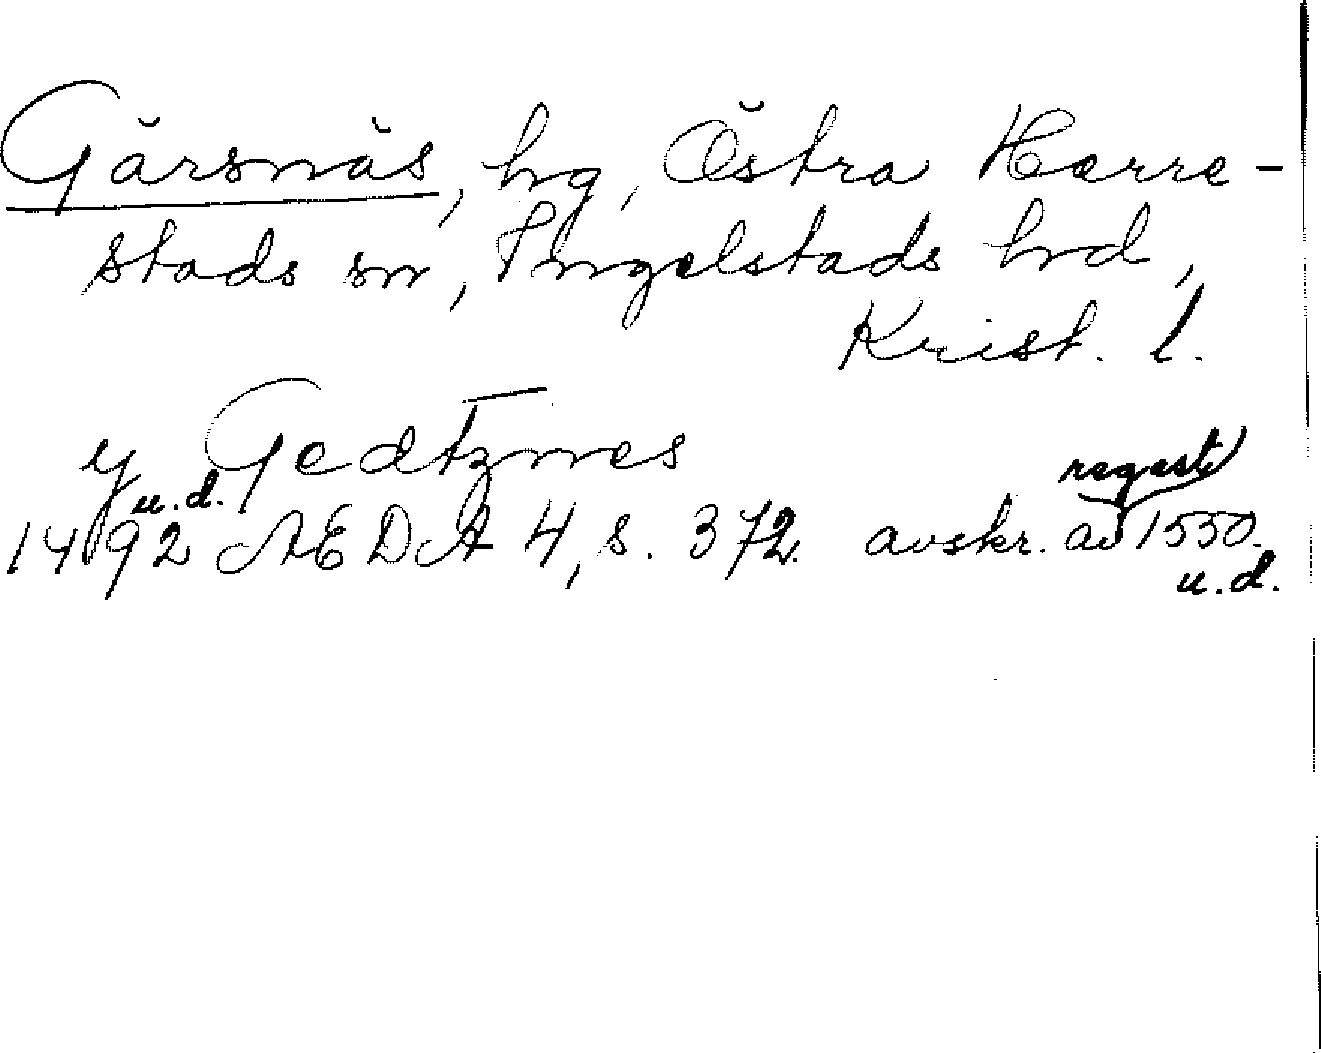 Gärsnäs, hg, Östra Herre-
stads sn, Ingelstads hrd,
Krist. l.
y Gedtznes
regest
u.d.
1492 AEDA 4, s. 372. avskr. av 1550.
u.d.